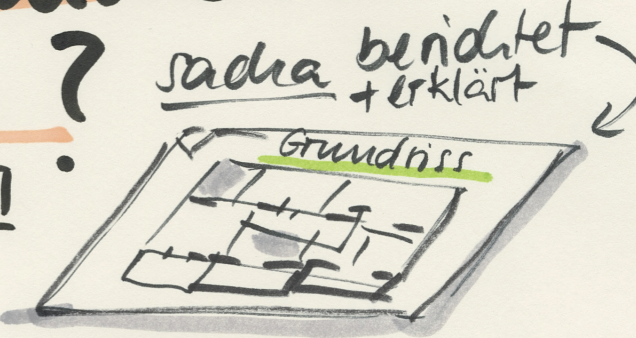 ?
sacha berichtet
+ erklärt
Grundriss